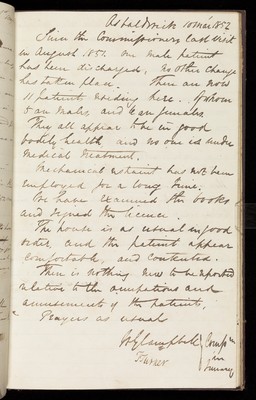 Osbaldwick 10 Mar 1852
Since the Commissioners last visit
in August 1851. one male patient
has been discharged, no other change
has taken place. There are now
11 patients residing here. Of whom
5 are Males, and 6 are females
They all appear to be in good
bodily health, and no one is under
Medical treatment.
Mechanical restraint has not been
employed for a long time.
We have examined the books
and signed the licence.
The house is as usual in good
order, and the patients appear
comfortable, and contented.
There is nothing new to be reported
relative to the occupations and
amusements of the patients,
Prayers as usual
Campbell
Turner
in
Lunacy